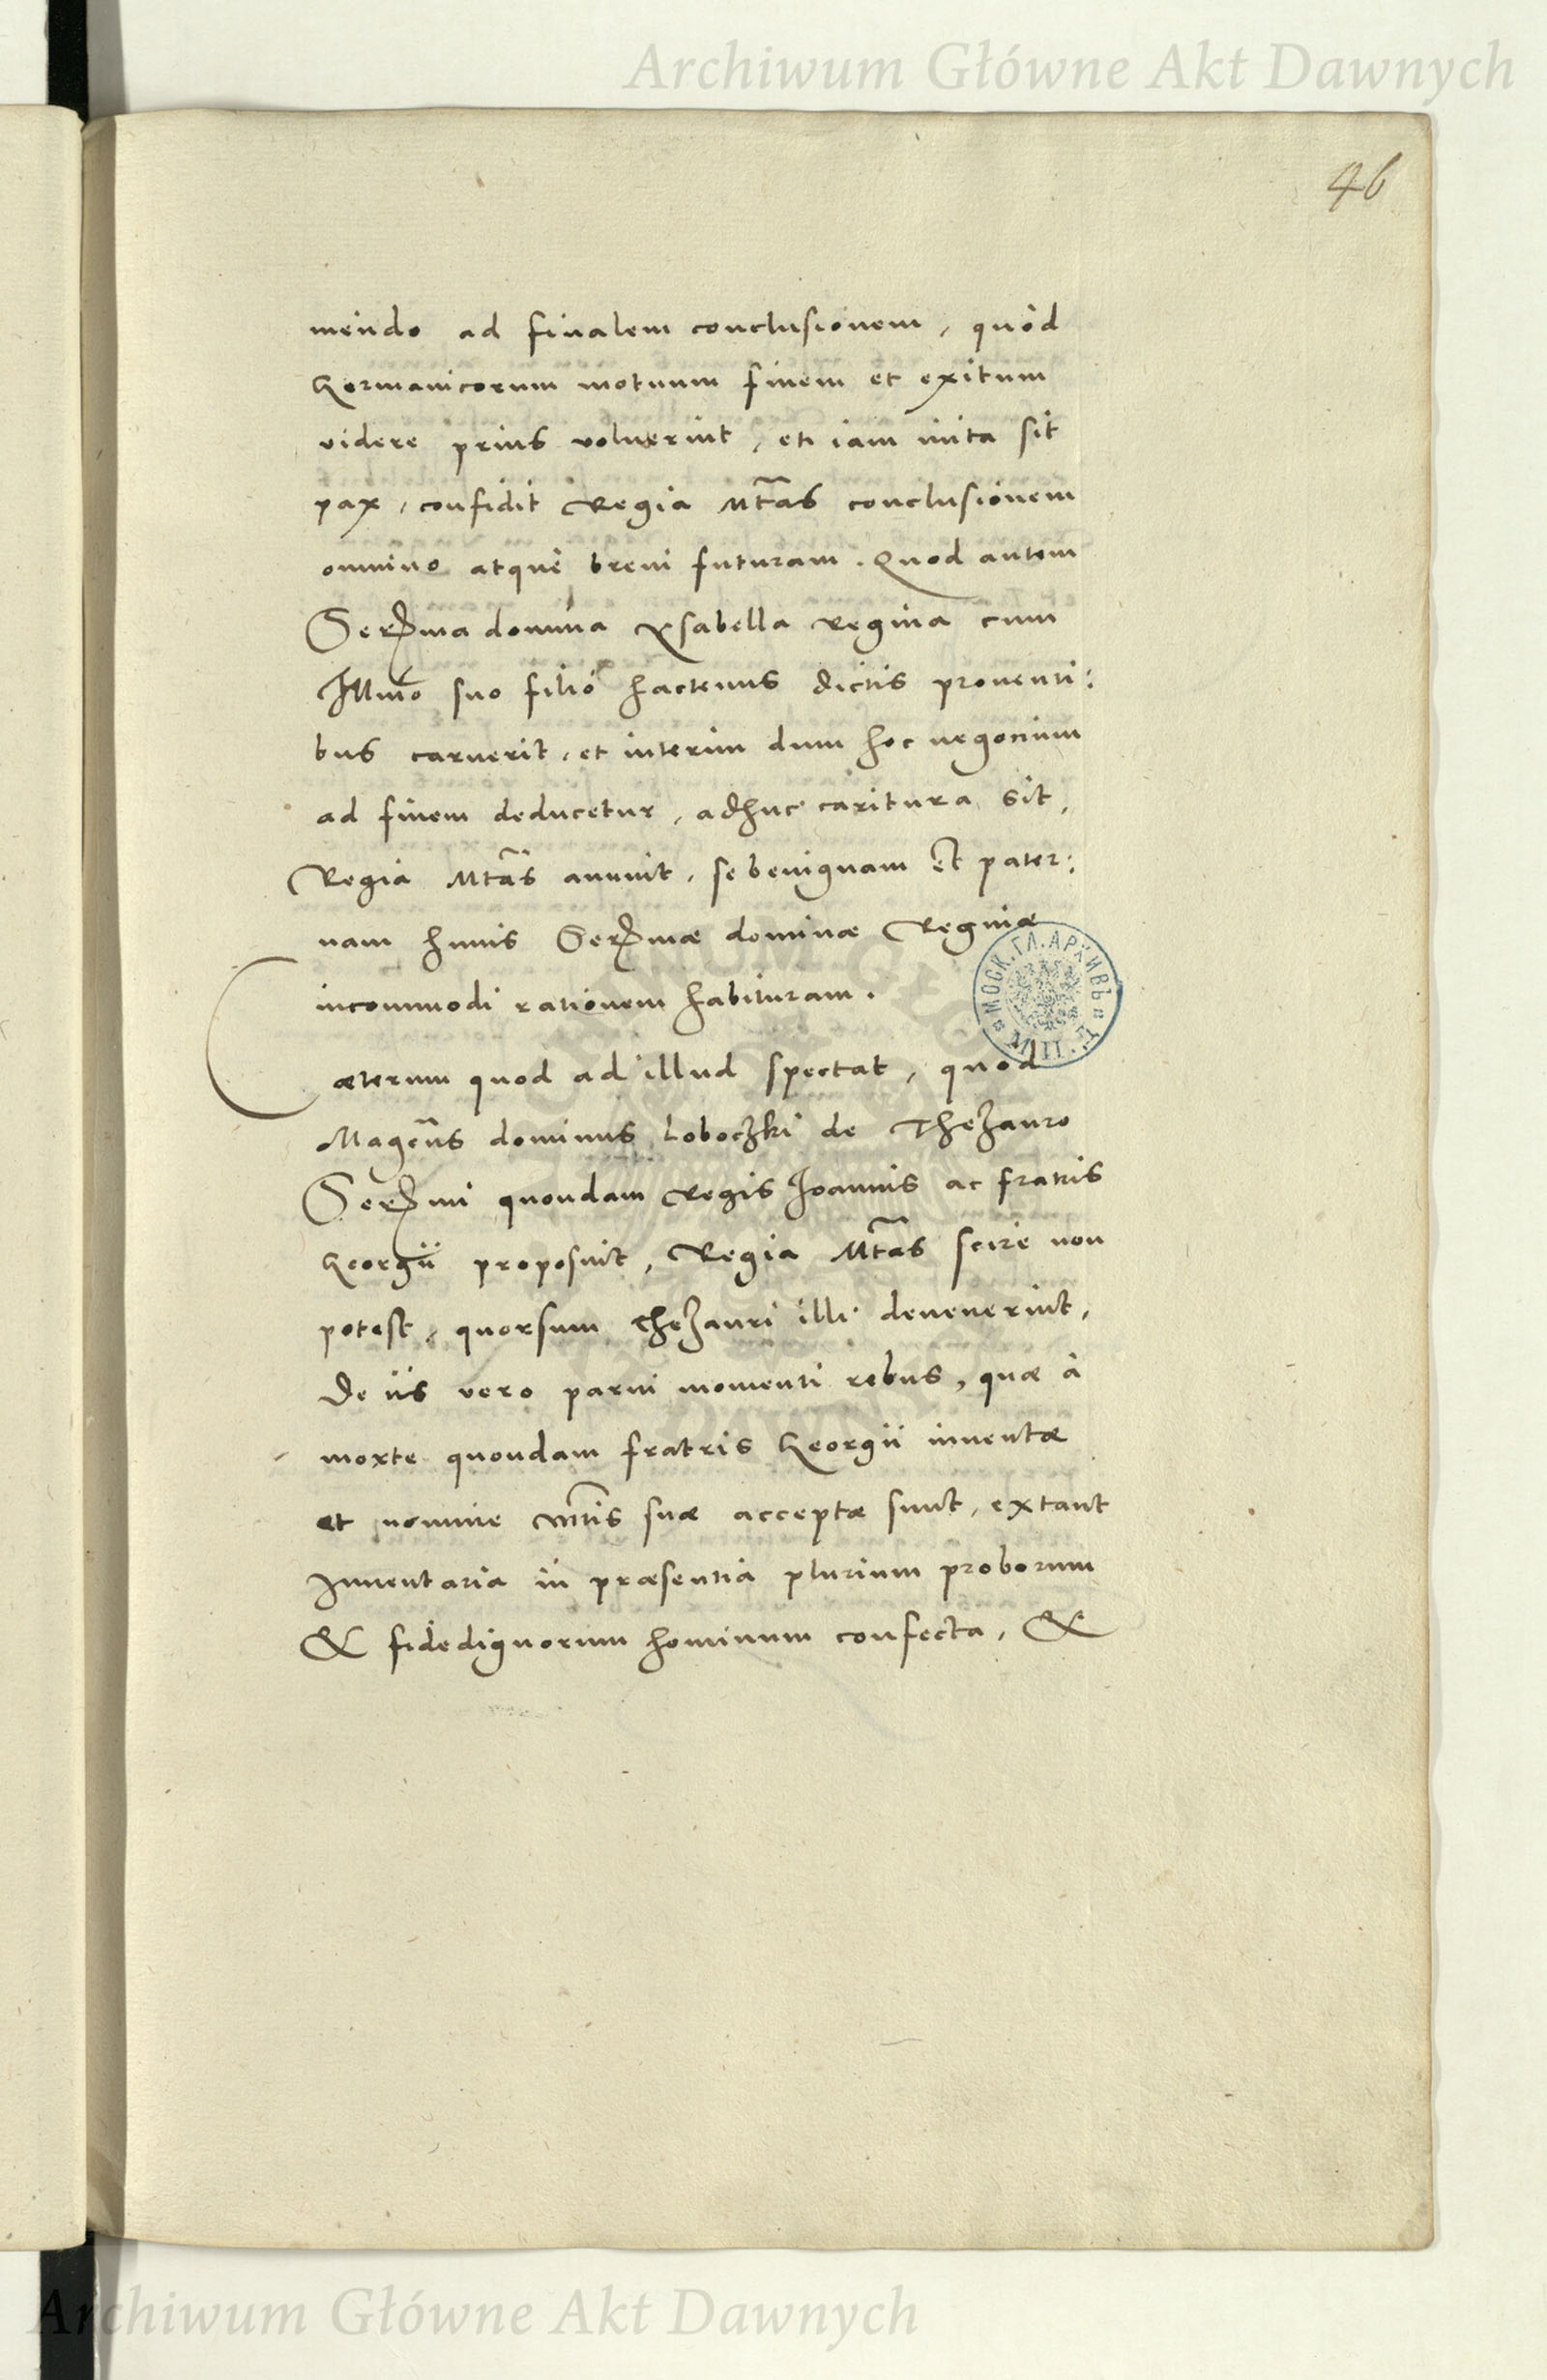 Archiwum Główne Akt Dawnych
46
mendo ad finalem conclusionem, quòd
Germanicorum motuum finem et exitum
videre prius voluerint, eti iam inita sit
pax, confidit Regia Mtas conclusionem
omnino atque breui futuram. Quod autem
Serma domina Ysabella Regina cum
Illmo suo filio hactenus dictis prouenti:
bus caruerit, et interim dum hoc negocium
ad finem deducetur, adhuc caritura sit,
Regia Mtas annuit, se benignam et pater:
nam huius Sermæ dominæ Reginæ
incommodi rationem habituram.
Cæterum quod ad illud spectat, quod
Magcus dominus Loboczki de Thezauro
Sermi quondam Regis Joannis ac fratris
Georgii proposuit, Regia Mtas scire non
potest, quorsum thezauri illi deuenerint,
De iis vero parui momenti rebus, quæ à
morte quondam fratris Georgii inuentæ
et nomine Mtis suæ acceptæ sunt, extant
Inuentaria in præsentia plurium proborum
& fidedignorum hominum confecta, &
МОСК. ГЛ. АРХИВЪ М.И.Д.
Archiwum Główne Akt Dawnych